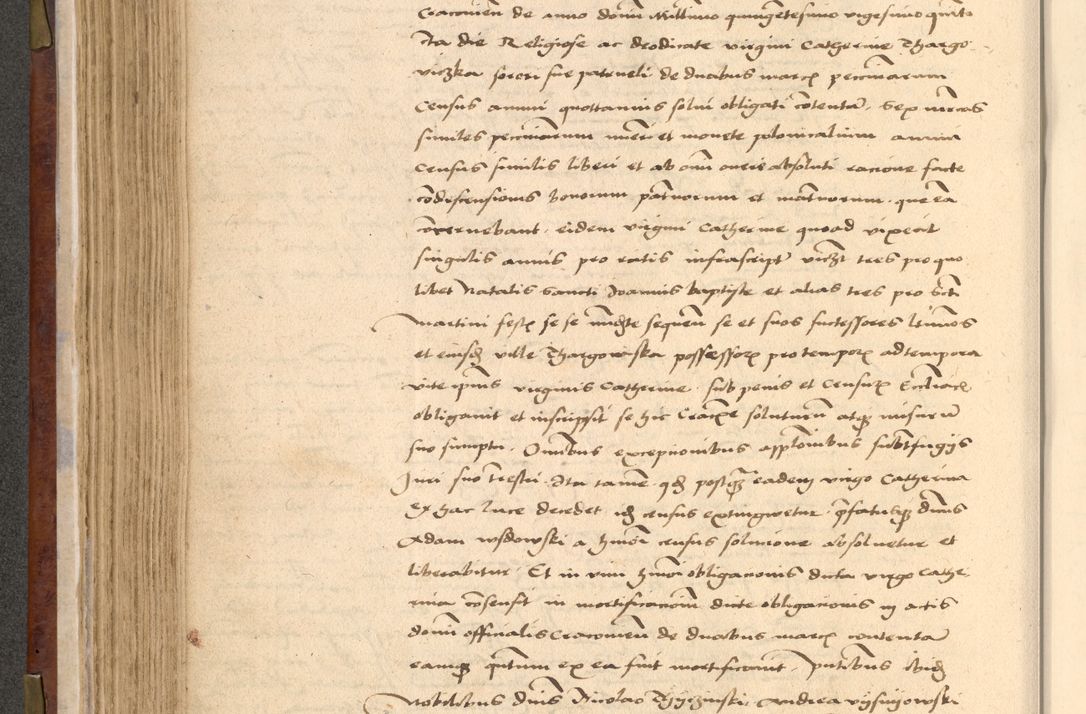 Cracovien de anno domini Millimo quingetesimo vigesimo quīto
Ita die Religiose ac deodicate virgini Catherine Thargo
viczka sorori sue patrueli de duabus marcz pecciarum
Census annui quottannis solvi obligati cōtentā. Sex mrcas
similes pecuniarum mūeri et monete polonicalium annui
Census similis liberi et ab omī oneris absoluti racione facte
cōdescensionis bonorum patrnorum et matrnorum. que ea
concernebant. eidem virgini Catherine quoad vixerit
singulis annis pro ratis infrascript viczt tres pro quo
libet Natalis Sancti Joannis baptiste et alias tres pro Scti
Martini festz se se īmediate sequeñ se et suos successores ltimos
et eiusdē ville Thargowiska possessorz pro temporz ad tempora
vite ipīus virginis Catherine. sub penis et Censurz Eccliacz
obligavit et inscripsit se hic Cracovie soluturū atqz misurū
suo sumptu. Omībus excepcionibus applōnibus subtfugijs
Juri suo resti. Ita tamē. qđ postqz eadem virgo Catherina
ex hac luce decedet iđ census extingwetur. pfatusqz dnus
Adam wsdowski a hmōi census solucione absolvetur et
liberabitur. Et in vim hmōi obligacionis dicta virgo Cathe
rina cōsensit in mortificacionē dicte obligacionis in actis
domī officialis Cracovien de duabus marcz contenta
eamqz qntum ex ea fuit mortificavit. pntibus ibidē
Nobilibus dnis Nicolao Thyczinski. Andrea vysnyowski